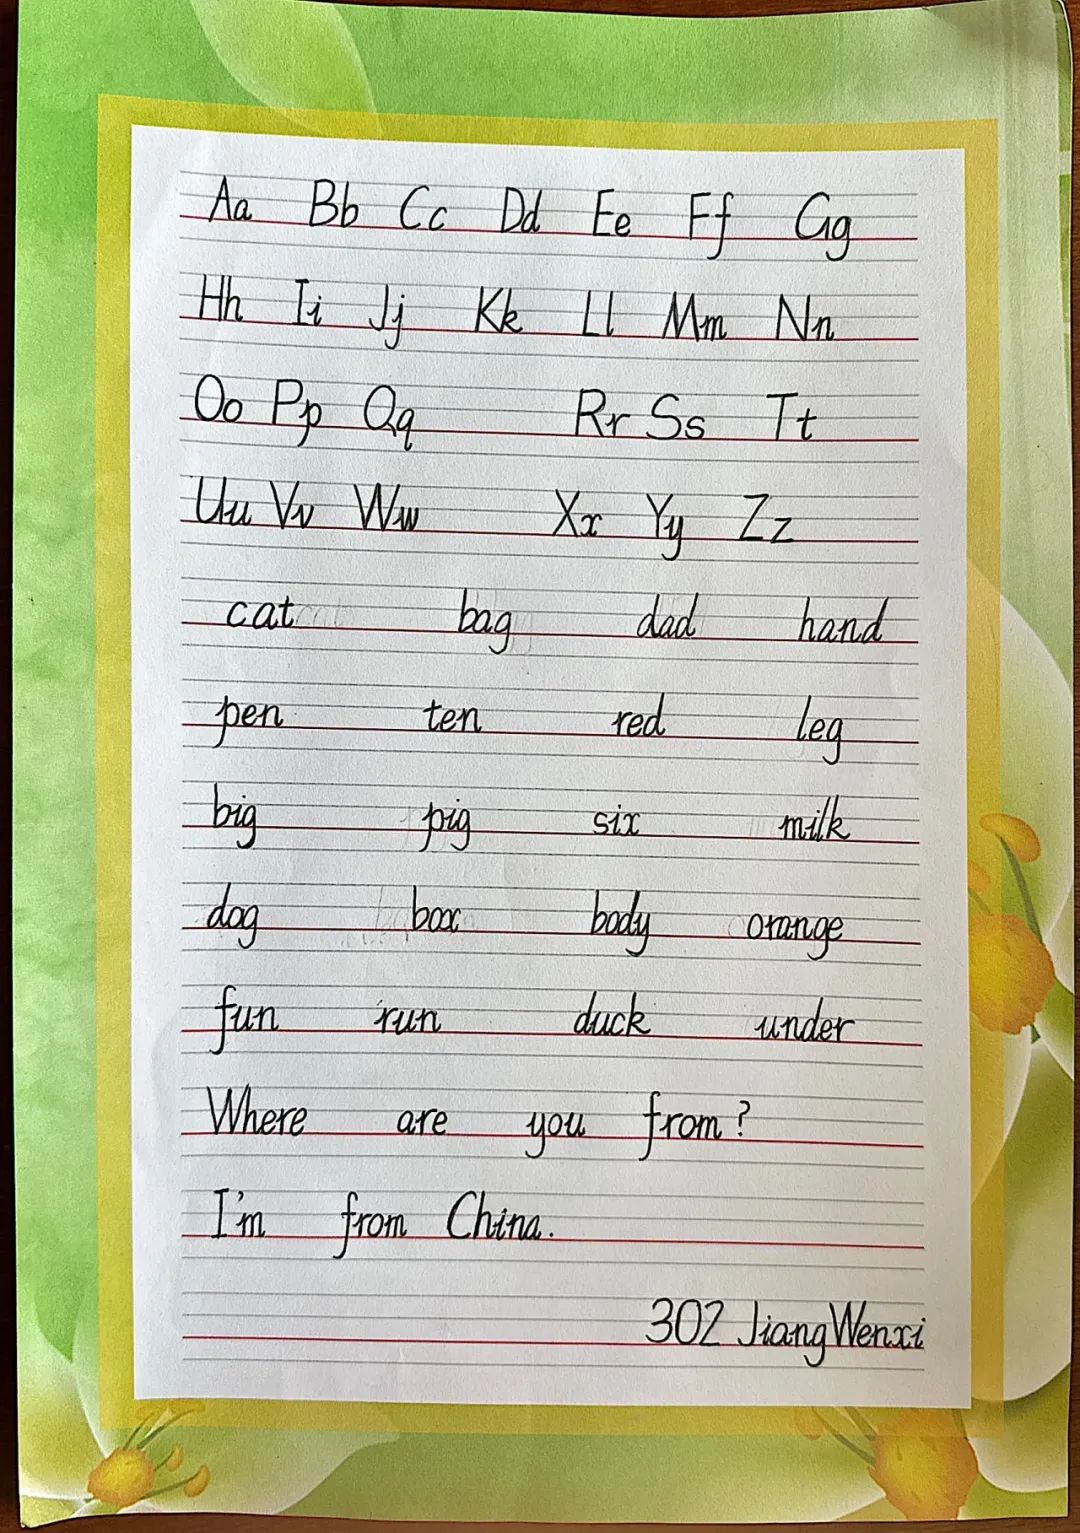 Aa Bb Cc Dd Ee Ff Gg
Hh Ii Jj Kk Ll Mm Nn
Oo Pp Qq Rr Ss Tt
Uu Vv Ww Xx Yy Zz
cat bag dad hand
pen ten red leg
big pig six milk
dog box body orange
fun run duck under
Where are you from?
I'm from China.
302 JiangWenxi